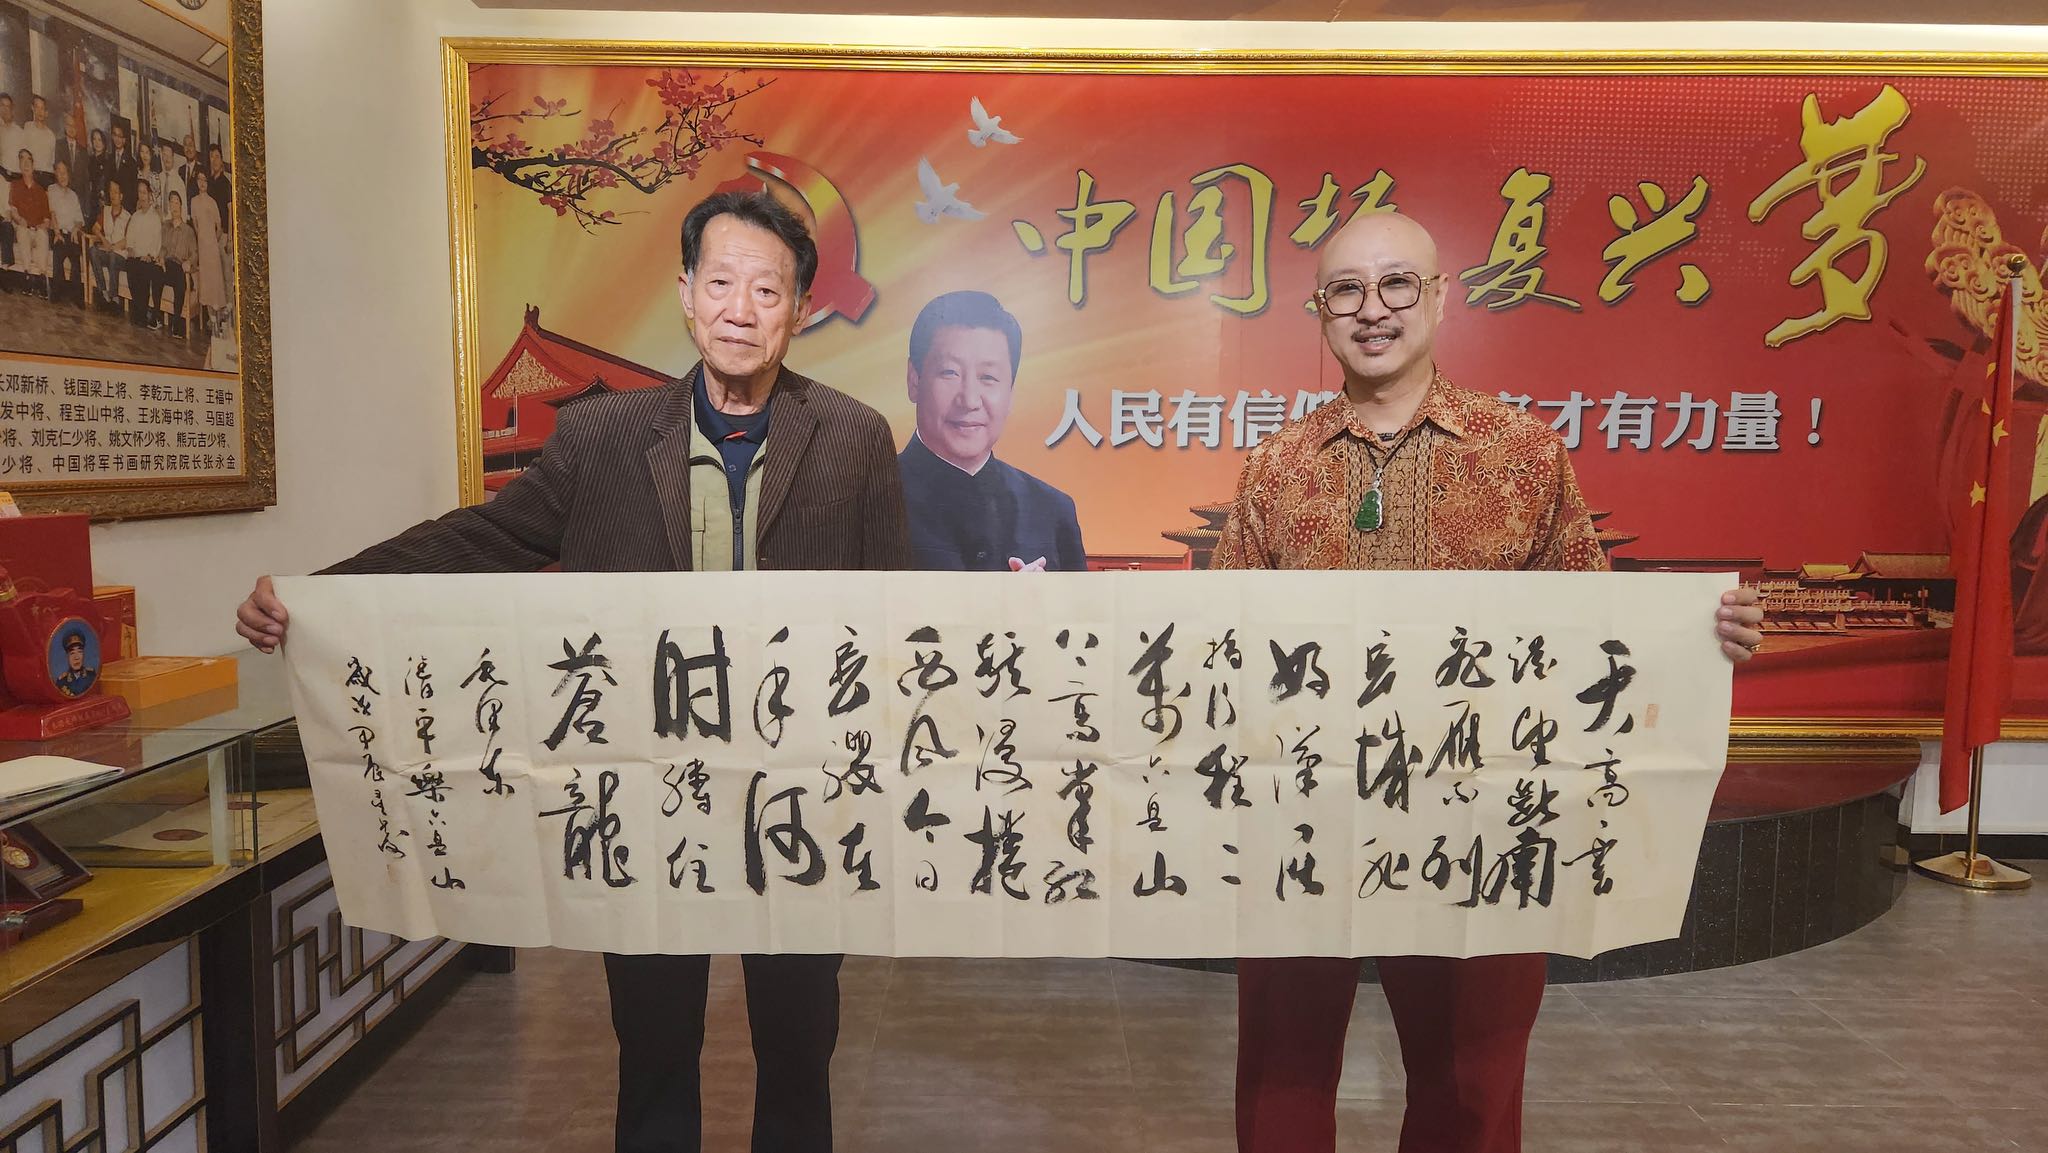 中国 复兴梦
人民有信 才有力量！
邓新桥、钱国梁上将、李乾元上将、王福中
发中将、程宝山中将、王兆海中将、马国超
将、刘克仁少将、姚文怀少将、熊元吉少将、
少将、中国将军书画研究院院长张永金
天高雲
淡望断南
飛雁不到
長城非
好漢屈
指行程二
萬六盘山
上高峯红
旗漫捲
西风今日
長纓在
手何
时縛住
蒼龍
毛泽东
清平樂六盘山
歲次甲辰